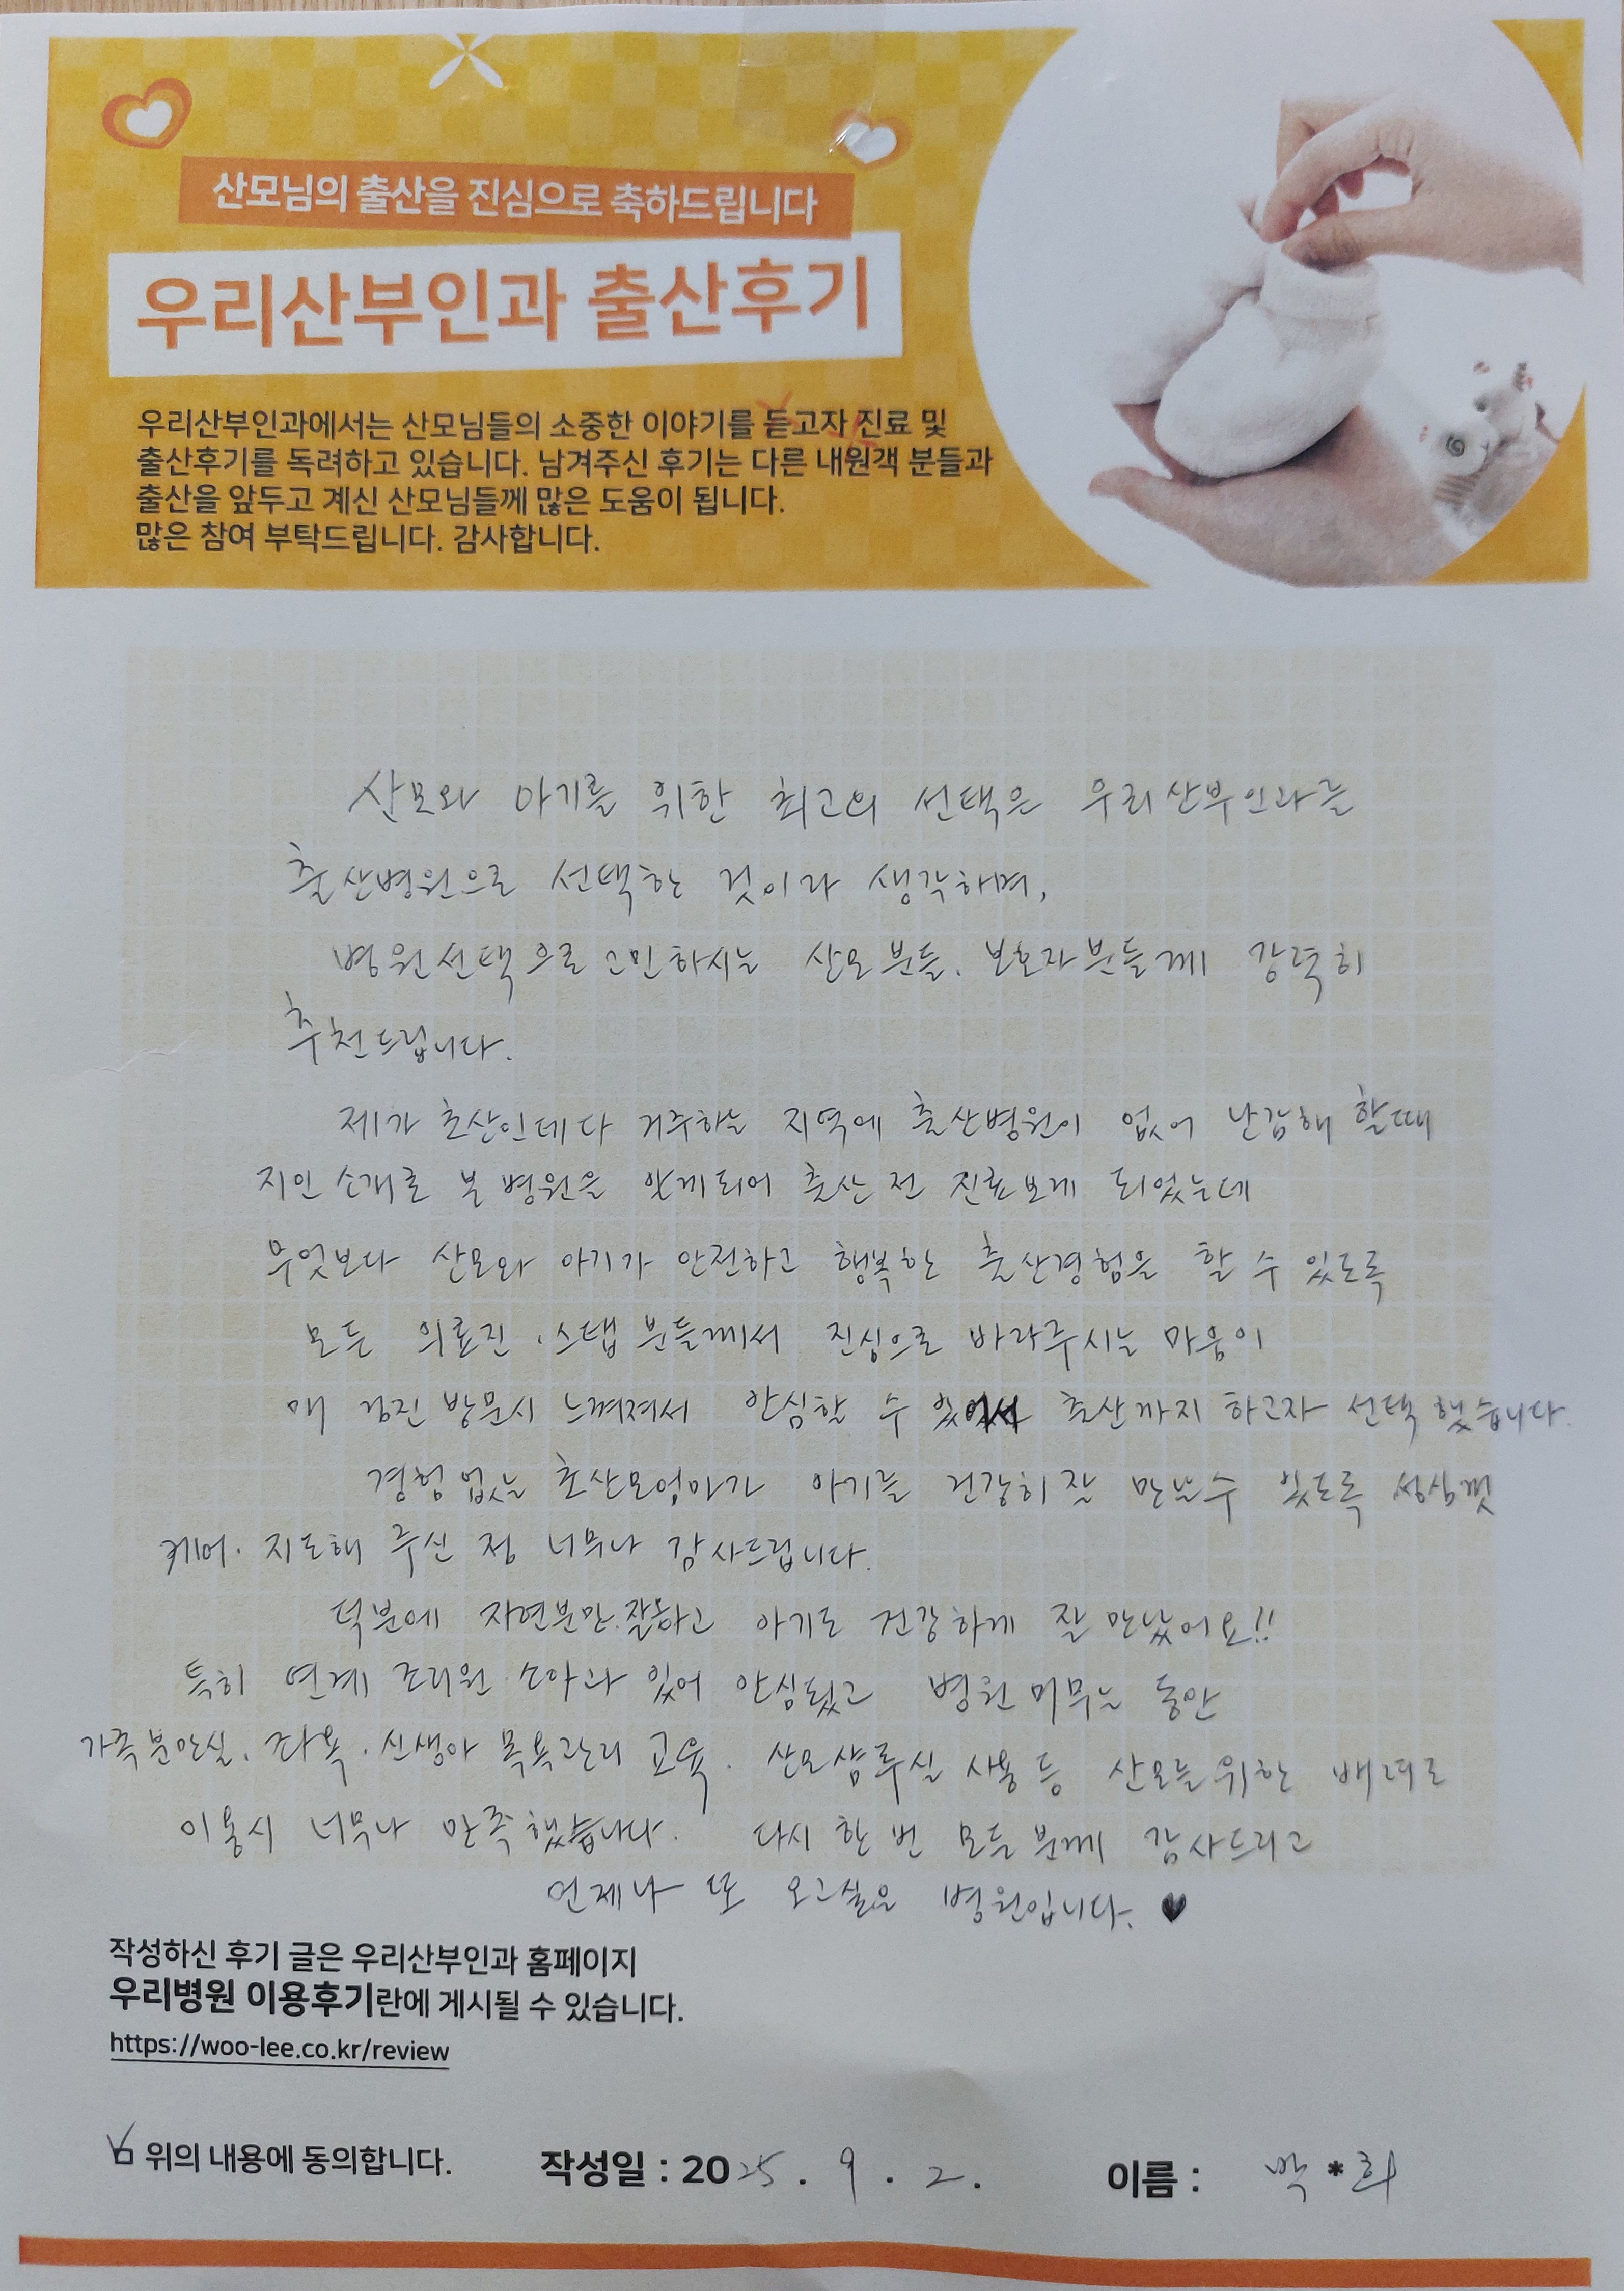 산모님의 출산을 진심으로 축하드립니다
우리산부인과 출산후기
우리산부인과에서는 산모님들의 소중한 이야기를 듣고자 진료 및
출산후기를 독려하고 있습니다. 남겨주신 후기는 다른 내원객 분들과
출산을 앞두고 계신 산모님들께 많은 도움이 됩니다.
많은 참여 부탁드립니다. 감사합니다.
산모와 아기를 위한 최고의 선택은 우리산부인과를
출산병원으로 선택한 것이라 생각하며,
병원선택으로 고민하시는 산모분들, 보호자분들께 강력히
추천드립니다.
제가 초산인데다 거주하는 지역에 출산병원이 없어 난감해 할때
지인 소개로 본 병원을 알게되어 출산 전 진료보게 되었는데
무엇보다 산모와 아기가 안전하고 행복한 출산경험을 할 수 있도록
모든 의료진·스탭 분들께서 진심으로 바라주시는 마음이
매 검진 방문시 느껴져서 안심할 수 있어서 출산까지 하고자 선택했습니다.
경험없는 초산모엄마가 아기를 건강히 잘 만날수 있도록 성심껏
케어·지도해 주신 점 너무나 감사드립니다.
덕분에 자연분만 잘하고 아기도 건강하게 잘 만났어요!!
특히 연계 조리원·소아과 있어 안심됐고 병원 머무는 동안
가족분만실, 좌욕·신생아 목욕관리 교육·산모샴푸실 사용 등 산모를 위한 배려로
이용시 너무나 만족했습니다. 다시 한 번 모든 분께 감사드리고
언제나 또 오고싶은 병원입니다. ♥
작성하신 후기 글은 우리산부인과 홈페이지
우리병원 이용후기란에 게시될 수 있습니다.
https://woo-lee.co.kr/review
위의 내용에 동의합니다. 작성일 : 2025 . 9 . 2. 이름 : 박*희